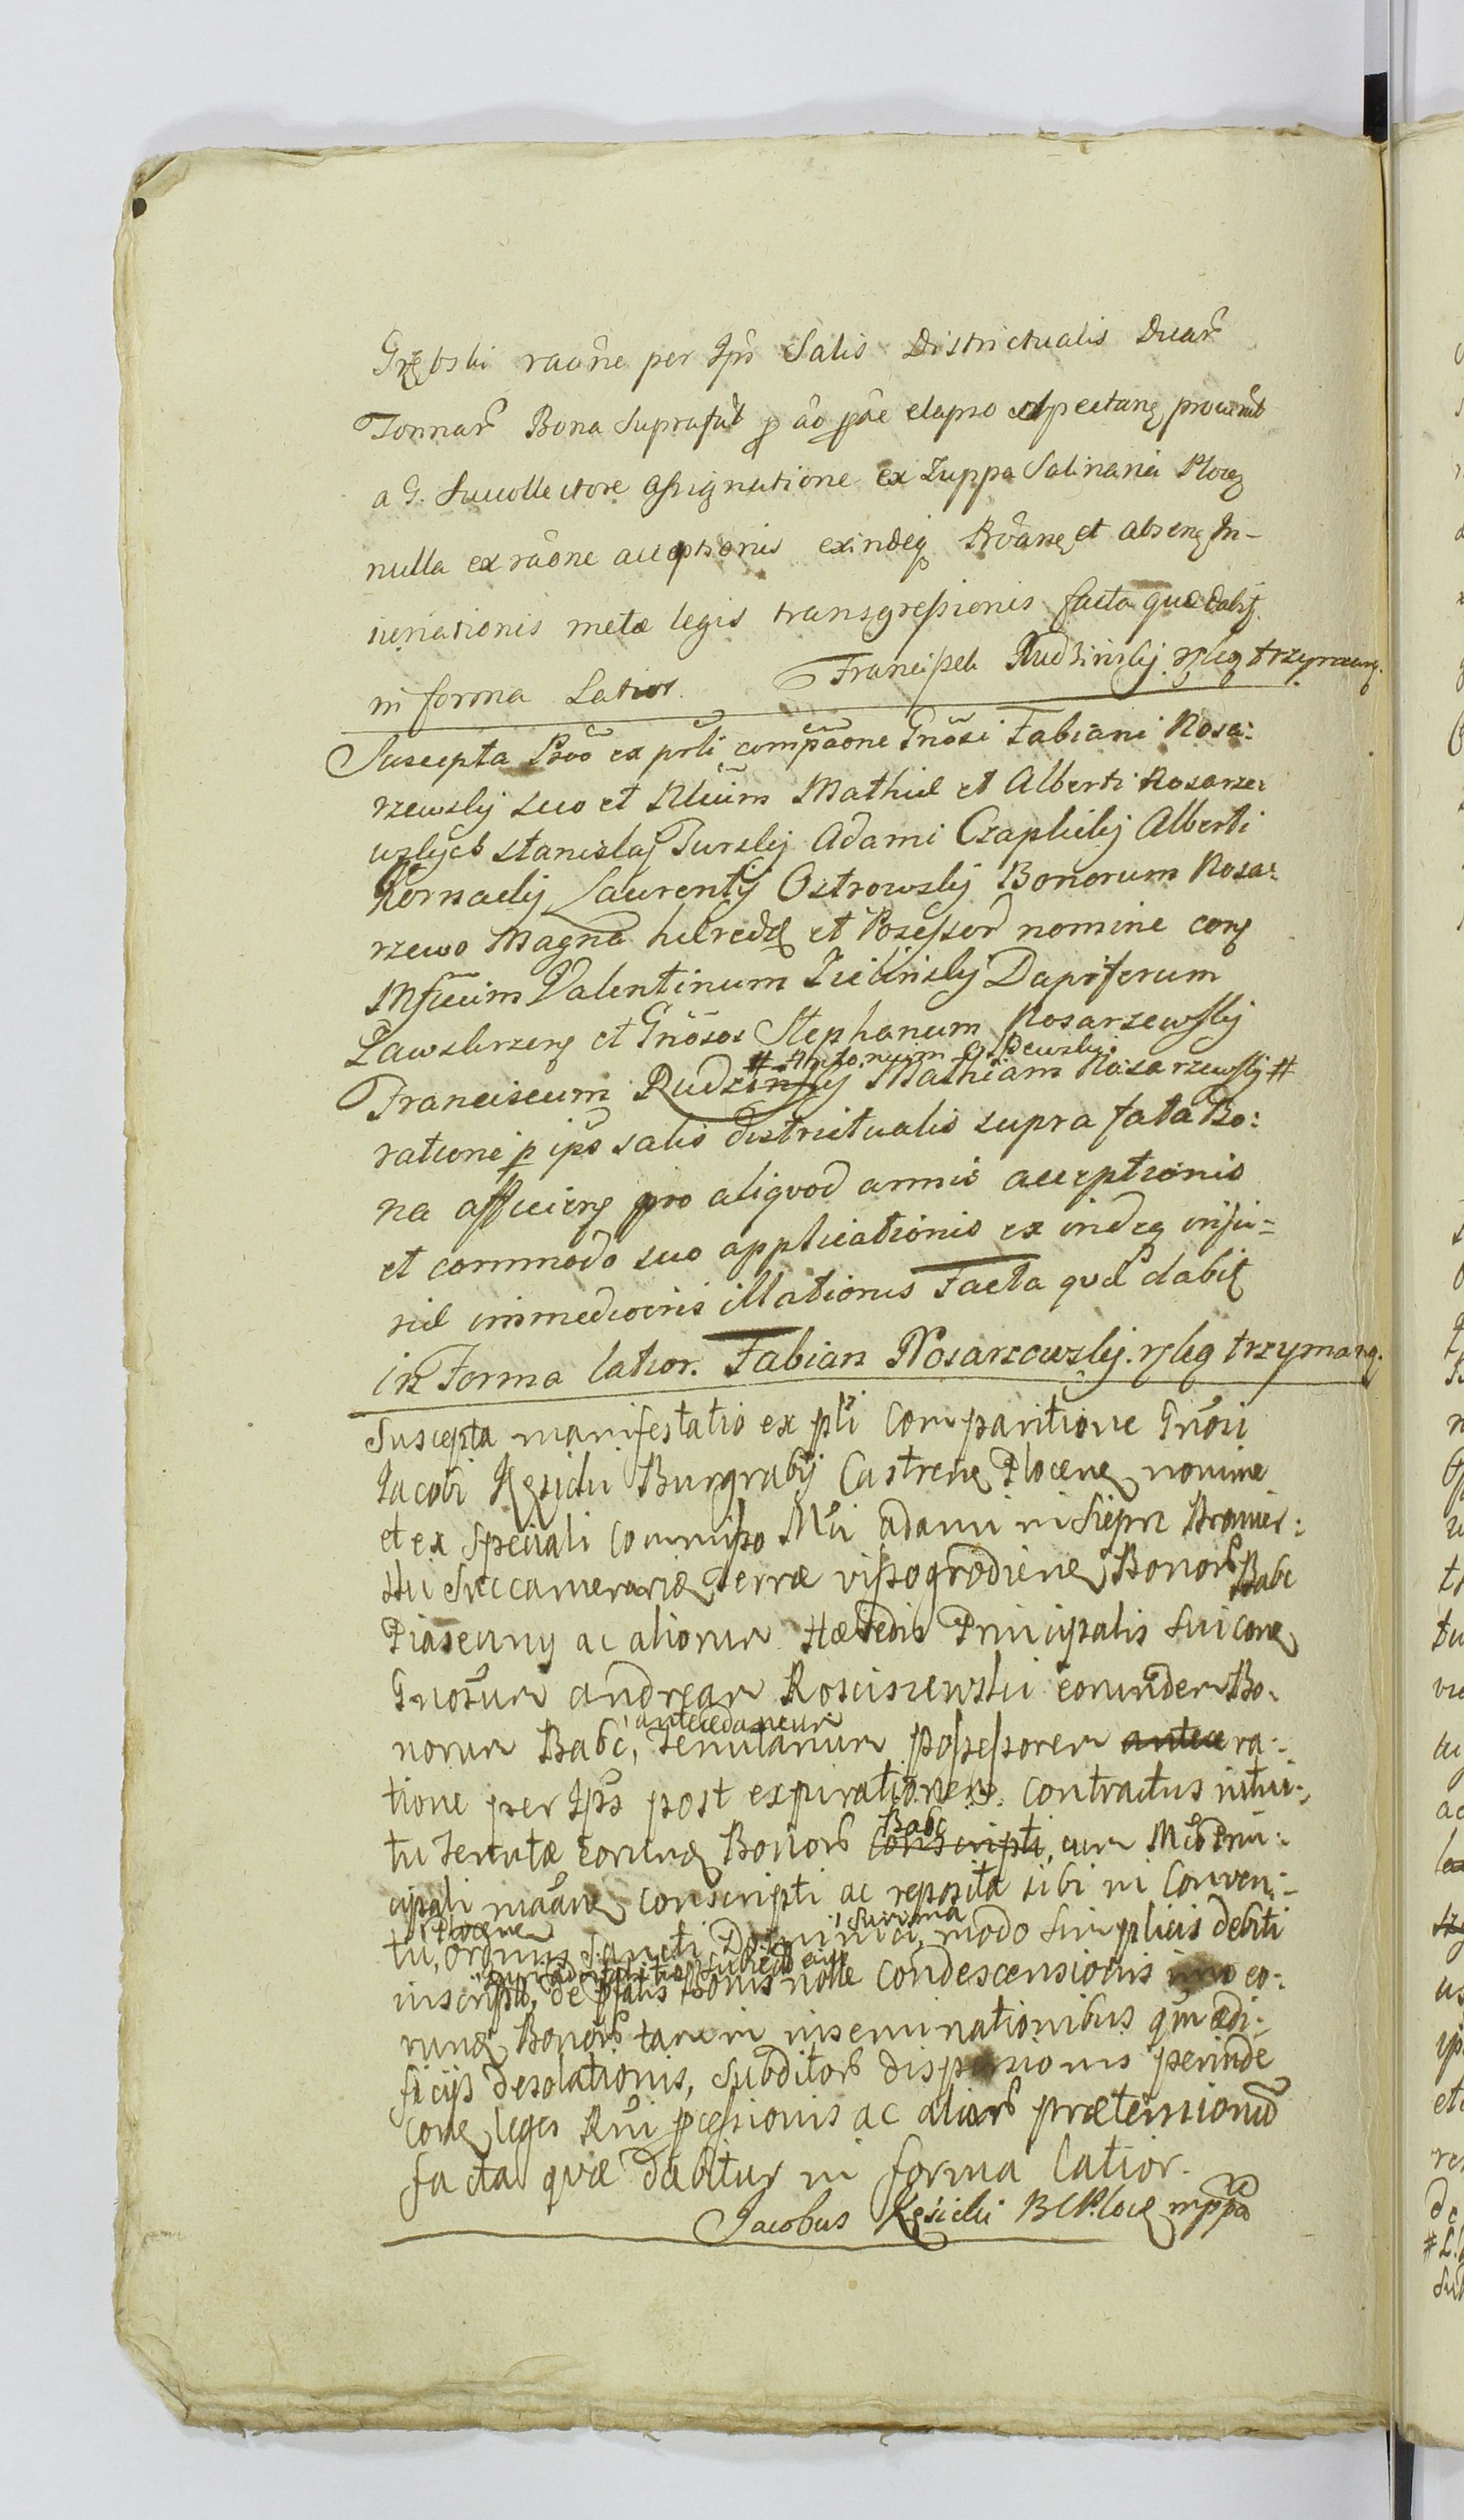 raõne per Ips Salis Districtualis Duar
Tonnar Bona Suprafat elapso
a G. Succollectore assignatione ex Zuppa Salinaria Plocę
nulla ex raõne acceptionis exindeq et In-
iuriationis metæ legis transgressionis facta quæ dabit
in forma Latior. Rudzinskij trzymaną.
Suscepta ex prti compãone Gnõsi Fabiani Rosa:
rzewskij suo et Mathiæ et Alberti Rosarze:
wskych Stanislaj Turskij Adami Czaplickij Alberti
Laurentij Ostrowskij Bonorum Rosa:
rzewo Magna hæredę et Posessor nomine conę
Mfcum Valentinum Zielinskij Dapiferum
Zawskrzenę et Gnõsos Stephanum Rosarzewskij
# Antonium
Franciscum Rudzinskij Mathiam Rosarzewskij #
ratione p ips salis districtualis supra fata Bo:
na afficienę pro aliqvod annis acceptionis
et commodo suo applicationis ex indeq inju=
riæ immediocris illationis Facta qvæ dabit
in Forma latior. Fabian Rosarzowskij. trzymaną.
Suscepta manifestatio ex pti Comparitione Gnõsi
Jacobi Kęsicki Burgrabij Castrenę Plocenę nomine
et ex Speciali Commisso Mci adami in Sieprc
Succamerariæ Terræ vissogrodienę Bonorb Babc
Piaseczny ac aliorum Hæredis Principalis Sui conę
Gnosum andream Rosciszewski eorundem Bo:
antecedaneum
norum Babc, Tenutarium possessorem antece ra:
tione per Ips post expirationem Contractus intui:
Babc
tu Tenutæ eorunę Bonorb conscripti, cum Mco Prin:
cipali conscripti ac reposita sibi in Conven:
Plocene Summa
tu, Ordinis Sancti Dominici, modo Simplicis debiti
inscripto, de pfatis Bonis nolle Condescensionis imo eo:
runę Bonorb tam in inseminationibus qm ædi:
ficijs desolationis, Subditorb dispersionis perinde
conę leges Rni pcessionis ac aliarb prætensionum
facta quæ dabitur in forma latior.
Jacobus Kęsicki B C Plocę mppa